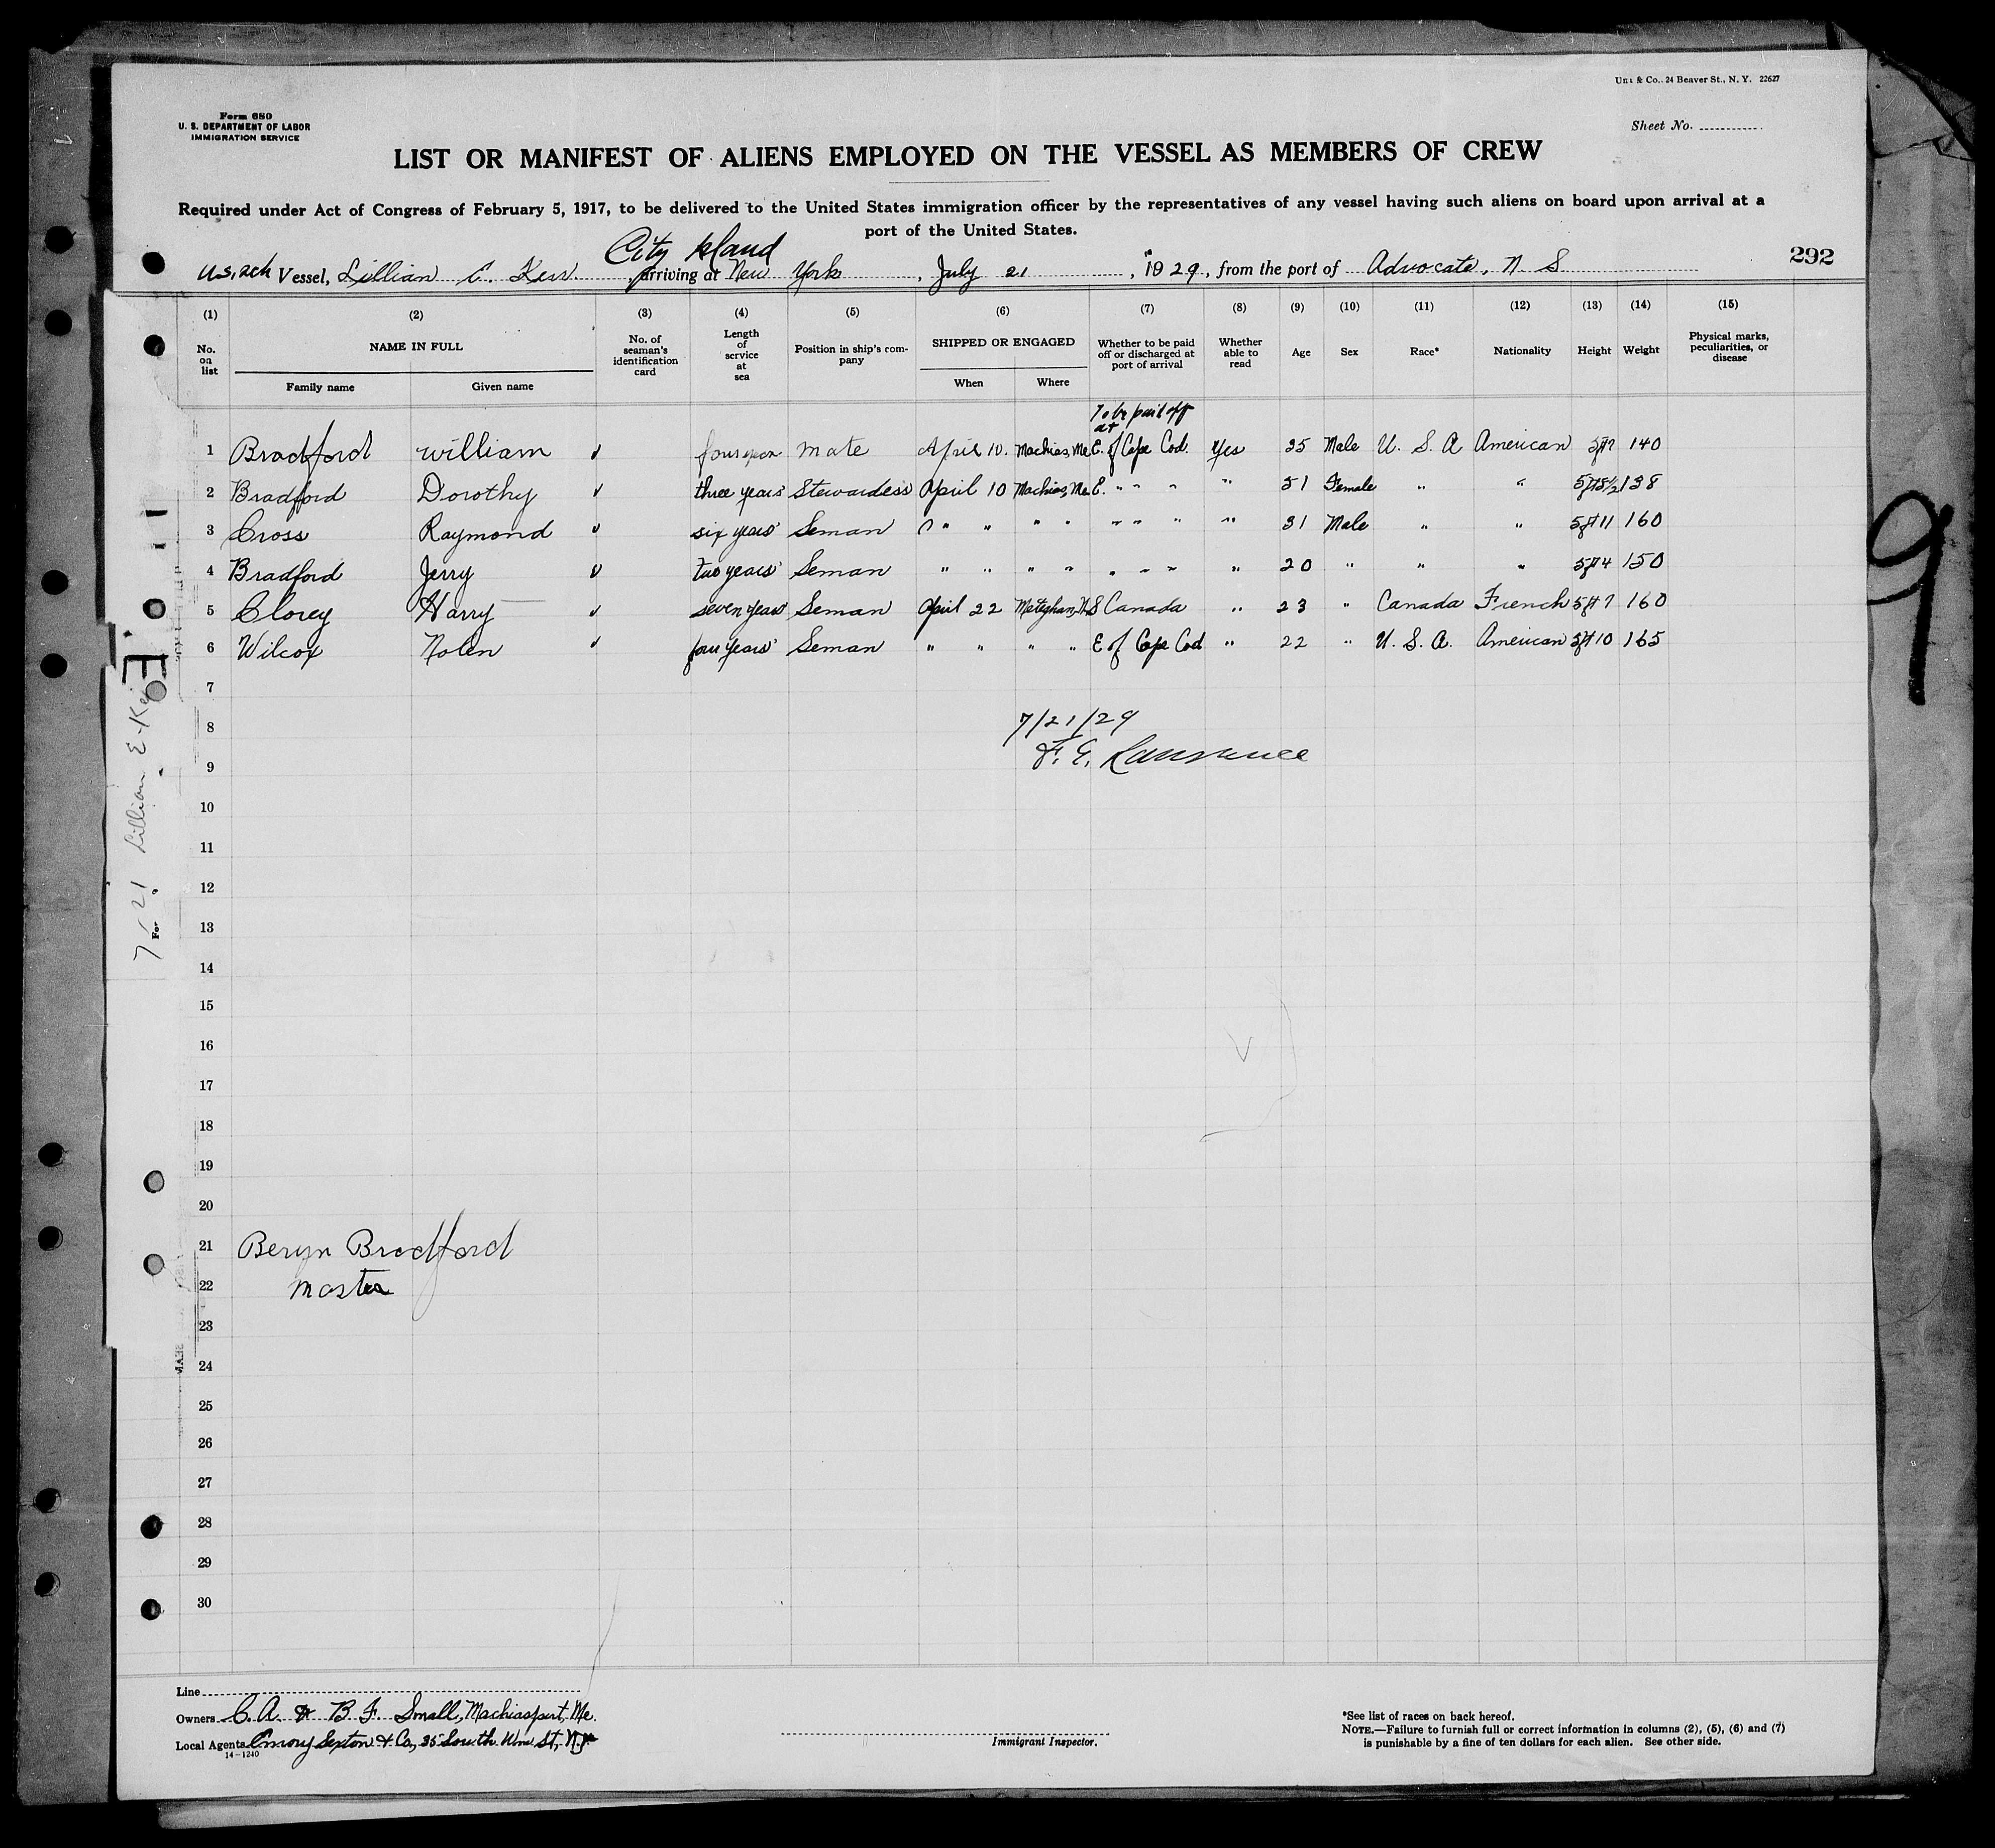 Unz & Co., 24 Beaver St., N. Y. 22627
Form 680
U. S. DEPARTMENT OF LABOR
IMMIGRATION SERVICE
Sheet No.
LIST OR MANIFEST OF ALIENS EMPLOYED ON THE VESSEL AS MEMBERS OF CREW
Required under Act of Congress of February 5, 1917, to be delivered to the United States immigration officer by the representatives of any vessel having such aliens on board upon arrival at a
port of the United States.
City Island
U.S. sch Vessel, Lillian E. Kerr, arriving at New York, July 21, 1929, from the port of Advocate, N S
292
(1) (2) (3) (4) (5) (6) (7) (8) (9) (10) (11) (12) (13) (14) (15)
No. on list NAME IN FULL Family name Given name No. of seaman's identification card Length of service at sea Position in ship's company SHIPPED OR ENGAGED When Where Whether to be paid off or discharged at port of arrival Whether able to read Age Sex Race* Nationality Height Weight Physical marks, peculiarities, or disease
To be paid off
at
1 Bradford William four years mate April 10. Machias, Me E. of Cape Cod. Yes Male U. S. A American 140
2 Bradford Dorothy three years Stewardess April 10 Machias, Me E. " " " " 51 Female " " 5ft 5 1/2 138
3 Cross Raymond six years Seman " " " " " " " " 31 Male " " 5ft 11 160
4 Bradford Jerry two years Seman " " " " " " " " 20 " " " 5ft 4 150
5 Clorey Harry seven years Seman April 22 Meteghan, N.S Canada " 23 " Canada French 5ft 7 160
6 Wilcox Nolen four years Seman " " " " E of Cape Cod " 22 " U. S. A. American 5ft 10 165
7
8 7/21/29
9 F. E. Lawrence
10
11
12
13
14
15
16
17
18
19
20
21 Beryn Bradford
22 master
23
24
25
26
27
28
29
30
7/21 Lillian E. Kerr
For
9
Line
Owners C. A. & B F. Small, Machiasport, Me.
Local Agents Emory Sexton & Co., 35 South Wm St, N.Y.
14-1240
Immigrant Inspector.
*See list of races on back hereof.
NOTE.—Failure to furnish full or correct information in columns (2), (5), (6) and (7)
is punishable by a fine of ten dollars for each alien. See other side.